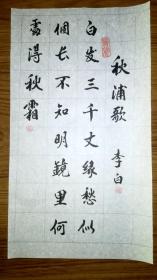 秋浦歌 李白
白发三千丈缘愁似
個长不知明鏡里何
處得秋霜